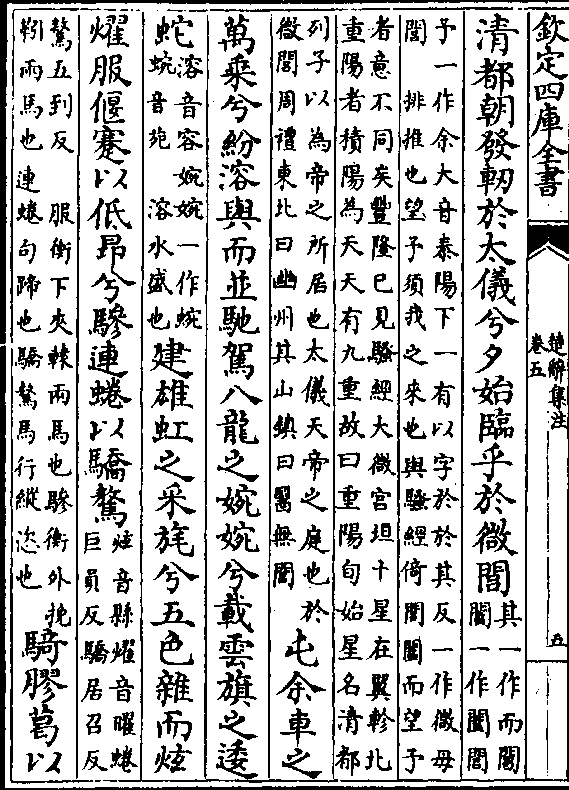 欽定四庫全書
楚辭集注
卷五
五
清都朝發軔於太儀兮夕始臨乎於微閭
其一作而閶
闔一作闔閶
予一作余大音泰陽下一有以字於於其反一作微母
閭 排推也望予須我之來也與騷經倚閶闔而望予
者意不同矣豐隆已見騷經大微宮垣十星在翼軫北
重陽者積陽為天天有九重故曰重陽旬始星名清都
列子以為帝之所居也太儀天帝之庭也於
微閭周禮東北曰幽州其山鎮曰醫無閭
屯余車之
萬乘兮紛溶與而並馳駕八龍之婉婉兮載雲旗之逶
蛇
溶音容婉婉一作蜿
蜿音 溶水盛也
建雄虹之采旄兮五色雜而炫
燿服偃蹇以低昂兮驂連蜷以驕驁
炫音縣燿音曜蜷
巨員反驕居召反
驁五到反 服衡下夾轅兩馬也驂衡外挽
靷兩馬也連蜷句蹄也驕驁馬行縱恣也
騎膠葛以